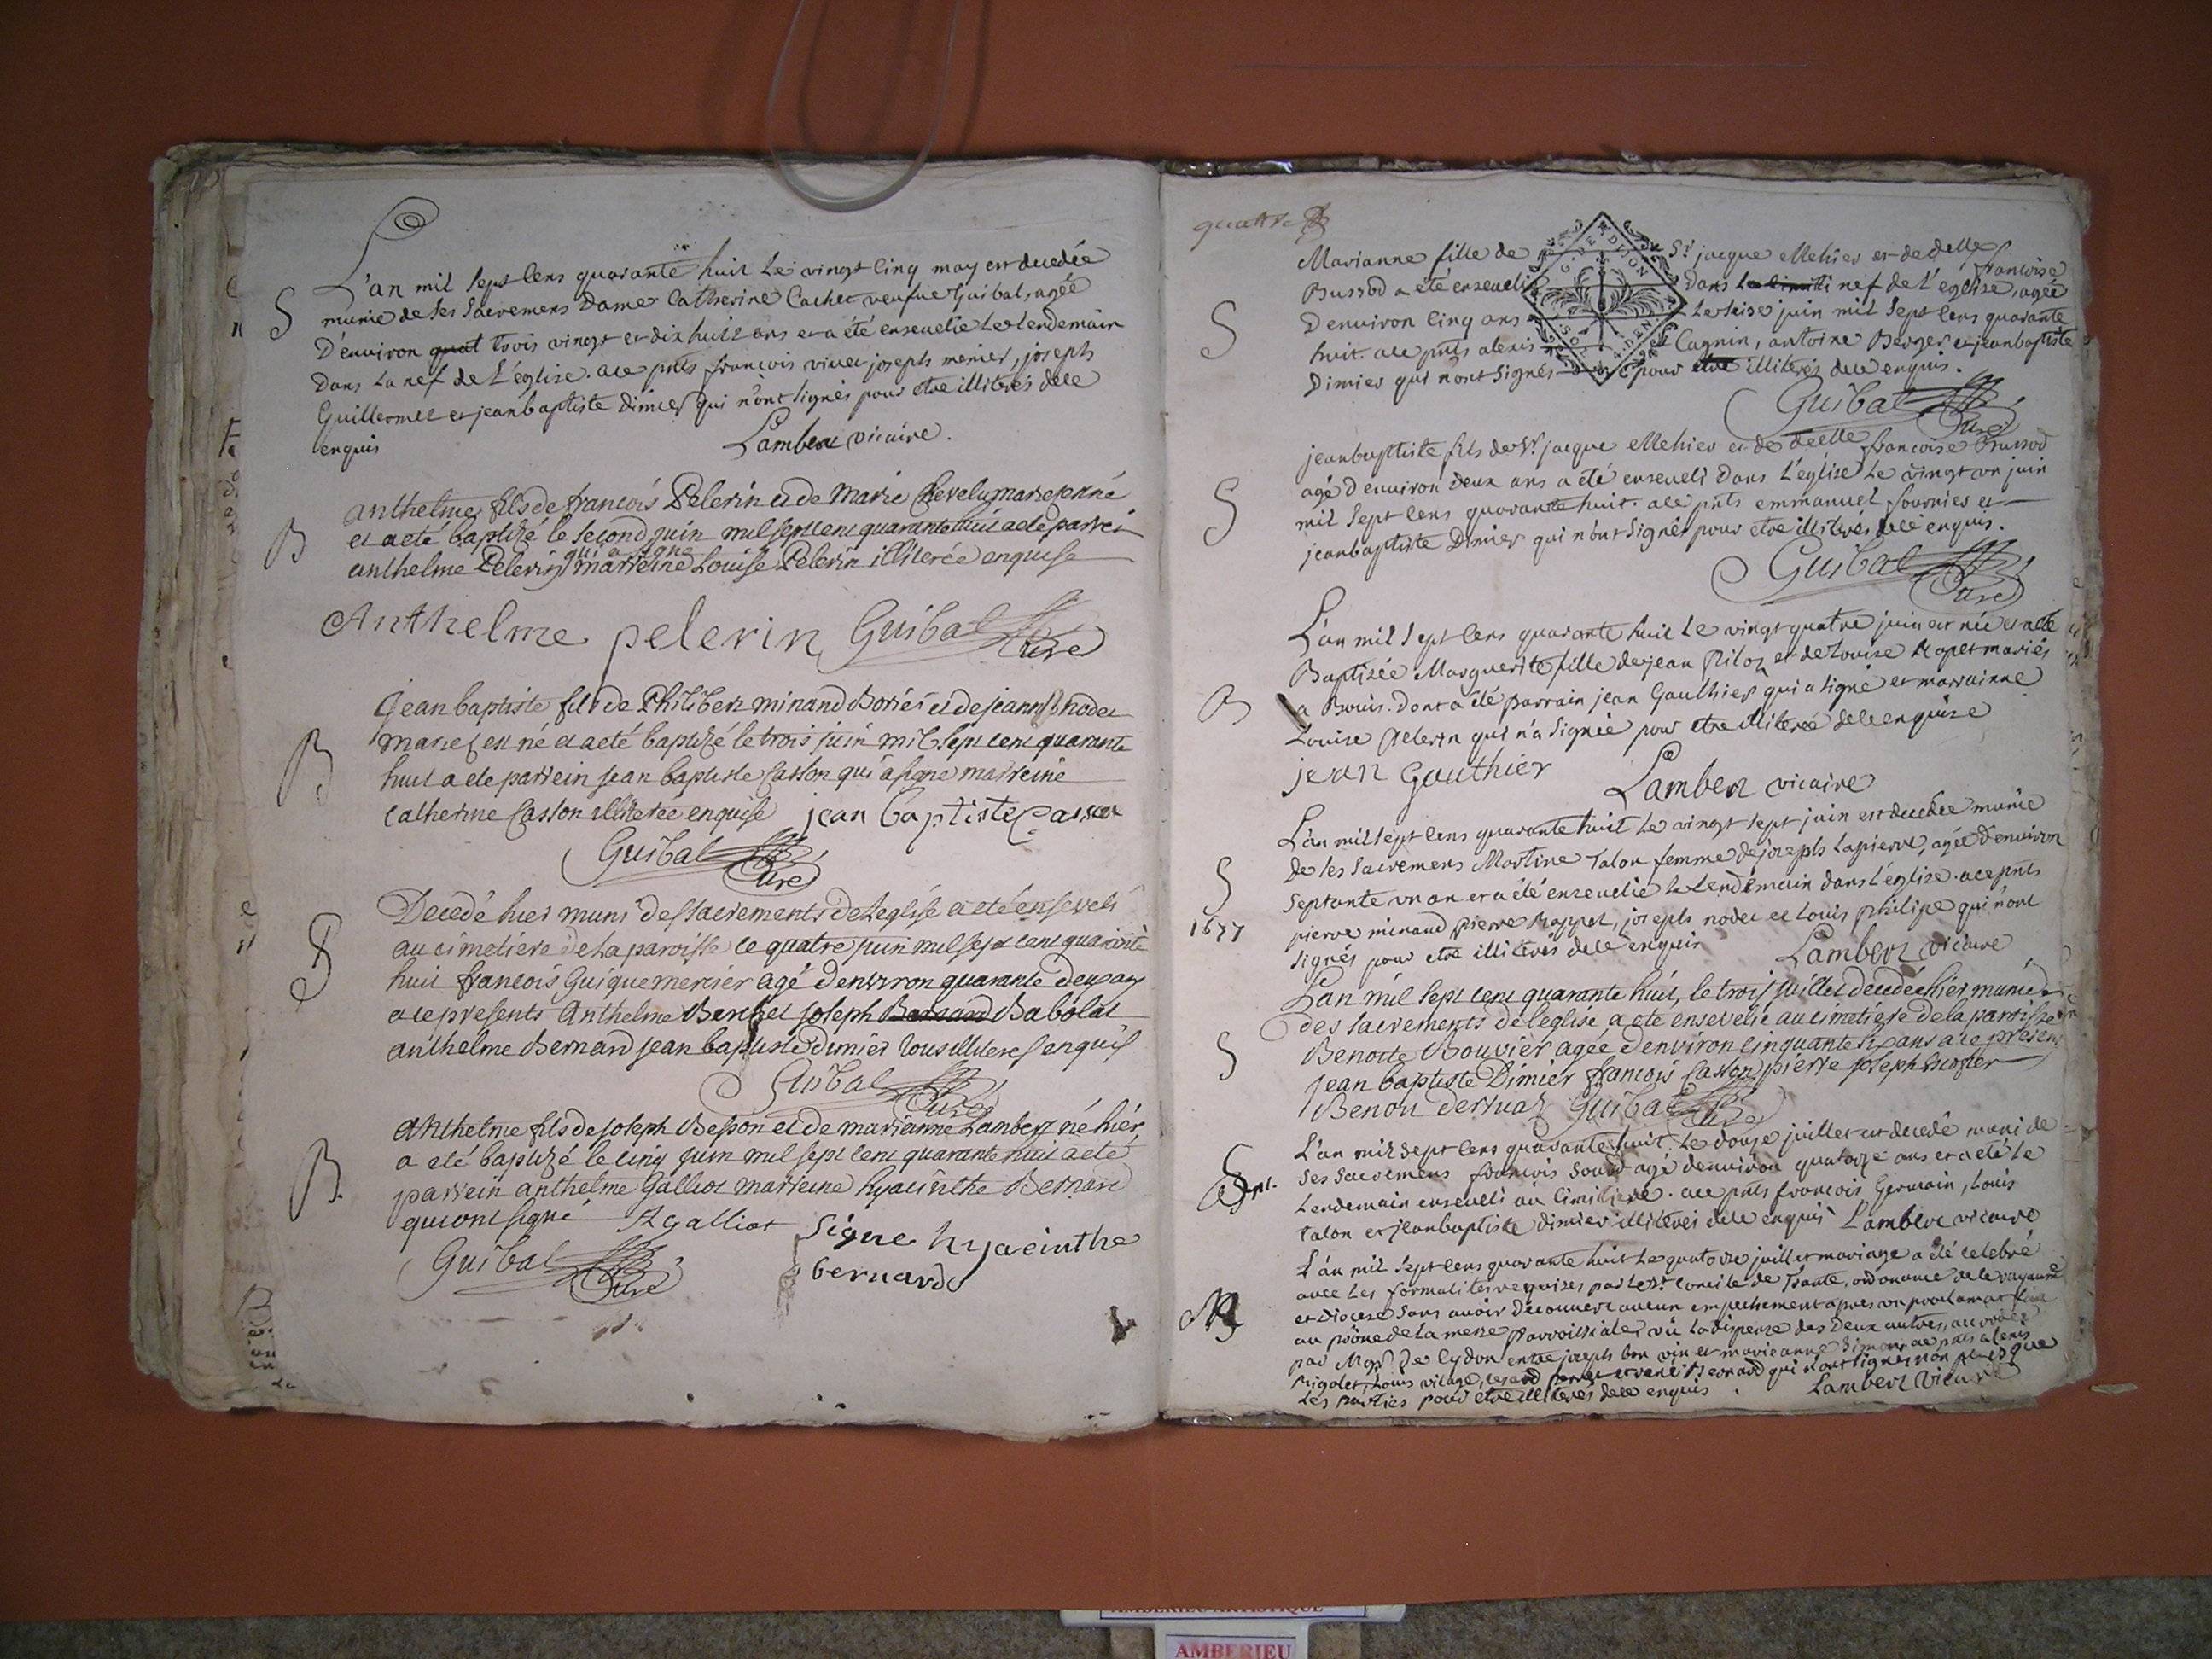 S
L'an mil sept cens quarante huit le vingt cinq may est decedée
munie de ses sacremens Dame Catherine Cachet veufue Guibal, agée
D'environ quat trois vingt et dix huit ans et a été enseuelie le lendemain
Dans la nef de L'eglise. ace pnts francois vinet joseph menier, joseph
Guillermet et jeanbaptiste Dimier qui n'ont signés pour etre illiterés dece
enquis
Lambert vicaire.
B
anthelme fils de francois Pelerin et de Marie Chevelu mariez est né
et a eté baptizé le second juin mil sept cent quarante huit a ete parrei
qui a signe
anthelme Pelerin marreine Louise Pelerin illiterée enquise
Anthelme pelerin Guibal Curé
B
Jean baptiste fils de Philibert minand Boriés et de jeanne nodet
mariez est né et a eté baptizé le trois juin mil sept cent quarante
huit a ete parrein jean baptiste Casson qui a signe marreine
catherine Casson illiterée enquise jean baptiste Casson
Guibal Curé
S
Decedé hier muni des sacrements de Leglise a eté enseveli
au cimetiere de La paroisse ce quatre juin mil sept cent quarante
huit francois Guique mercier agé d'environ quarante deux ans
ace presents Anthelme Berthet joseph Bernard Babolat
anthelme Bernard jean baptiste dimier tous illiteres enquis
Guibal Curé
B.
anthelme fils de joseph Besson et de marianne Lambert né hier,
a eté baptizé le cinq juin mil sept cent quarante huit a eté
parrein anthelme Galliot marreine hyacinthe Bernard
qui ont signé A galliot Signe hyacinthe
Guibal Curé bernard
quattre
S
Marianne fille de Sr jacque Mehier et de delle francoise
Bussod a été enseueli Dans la cimiti nef de L'église, agée
D'environ cinq ans Le seise juin mil sept cens quarante
huit. ace pnts alexis Cagnin, antoine Berger et jeanbaptiste
Dimier qui n'ont signés pour etre illiterés dece enquis.
G. DE DIJON
Guibal Curé
S
jeanbaptiste fils de Sr. jacque Mehier et de delle francoise Bussod
agé d'environ deux ans a été enseueli Dans L'église Le vingt un juin
mil sept cens quarante huit. ace pnts emmanuel fournier et
jeanbaptiste Dimier qui n'ont signés pour etre illiterés dece enquis.
Guibal Curé
B
L'an mil sept cens quarante huit Le vingt quatre juin est née et a été
Baptisée Marguerite fille de jean Piloz et de Louise mariés
a Dont a été parrain jean Gauthier qui a signé et marrainne
Louise Pelerin qui n'a signée pour etre illiterée dece enquise
jean Gauthier Lambert vicaire
S
L'an mil sept cens quarante huit Le vingt sept juin est decedée munie
De ses sacremens Martine Talon femme de joseph Lapierre, agée d'environ
septante un an et a été enseuelie le lendemain dans L'église. ace pnts
1677
pierre minand pierre joseph nodet et Louis philipe qui n'ont
signés pour etre illiterés dece enquis Lambert vicaire
S
L'an mil sept cent quarante huit, le trois juillet decedée hier munie
des sacrements de l'eglise a ete ensevelie au cimetiere de la paroisse
Benoite Bouvier agée d'environ cinquante six ans ace present
Jean baptiste Dimier francois Casson pierre joseph
Benoit Guibal Curé
S
L'an mil sept cens quarante huit, Le douze juillet est decedé muni de
ses sacremens francois sourd agé d'environ quatorze ans et a été Le
Lendemain enseueli au cimitiere. ace pnts francois Germain, Louis
talon et jeanbaptiste dimier illiterés dece enquis Lambert vicaire
M
L'an mil sept cens quarante huit Le quatorze juillet mariage a été celebré
avec les formalités requises par Le St. Concile de Trante, ordonance de ce royaume
et Diocese sans avoir Découvert aucun empechement apres un proclamat fait
au prône de la messe parroissiale, vü la dispense des Deux autres, accordée
par Mgr De Lydon entre joseph bon vin et marieanne ace pnts alexis
Rigolet, Louis et rené Bernard qui n'ont signés non plus que
Les parties pour etre illiterés dece enquis Lambert Vicaire
AMBERIEU ARTISTIQUE
AMBERIEU